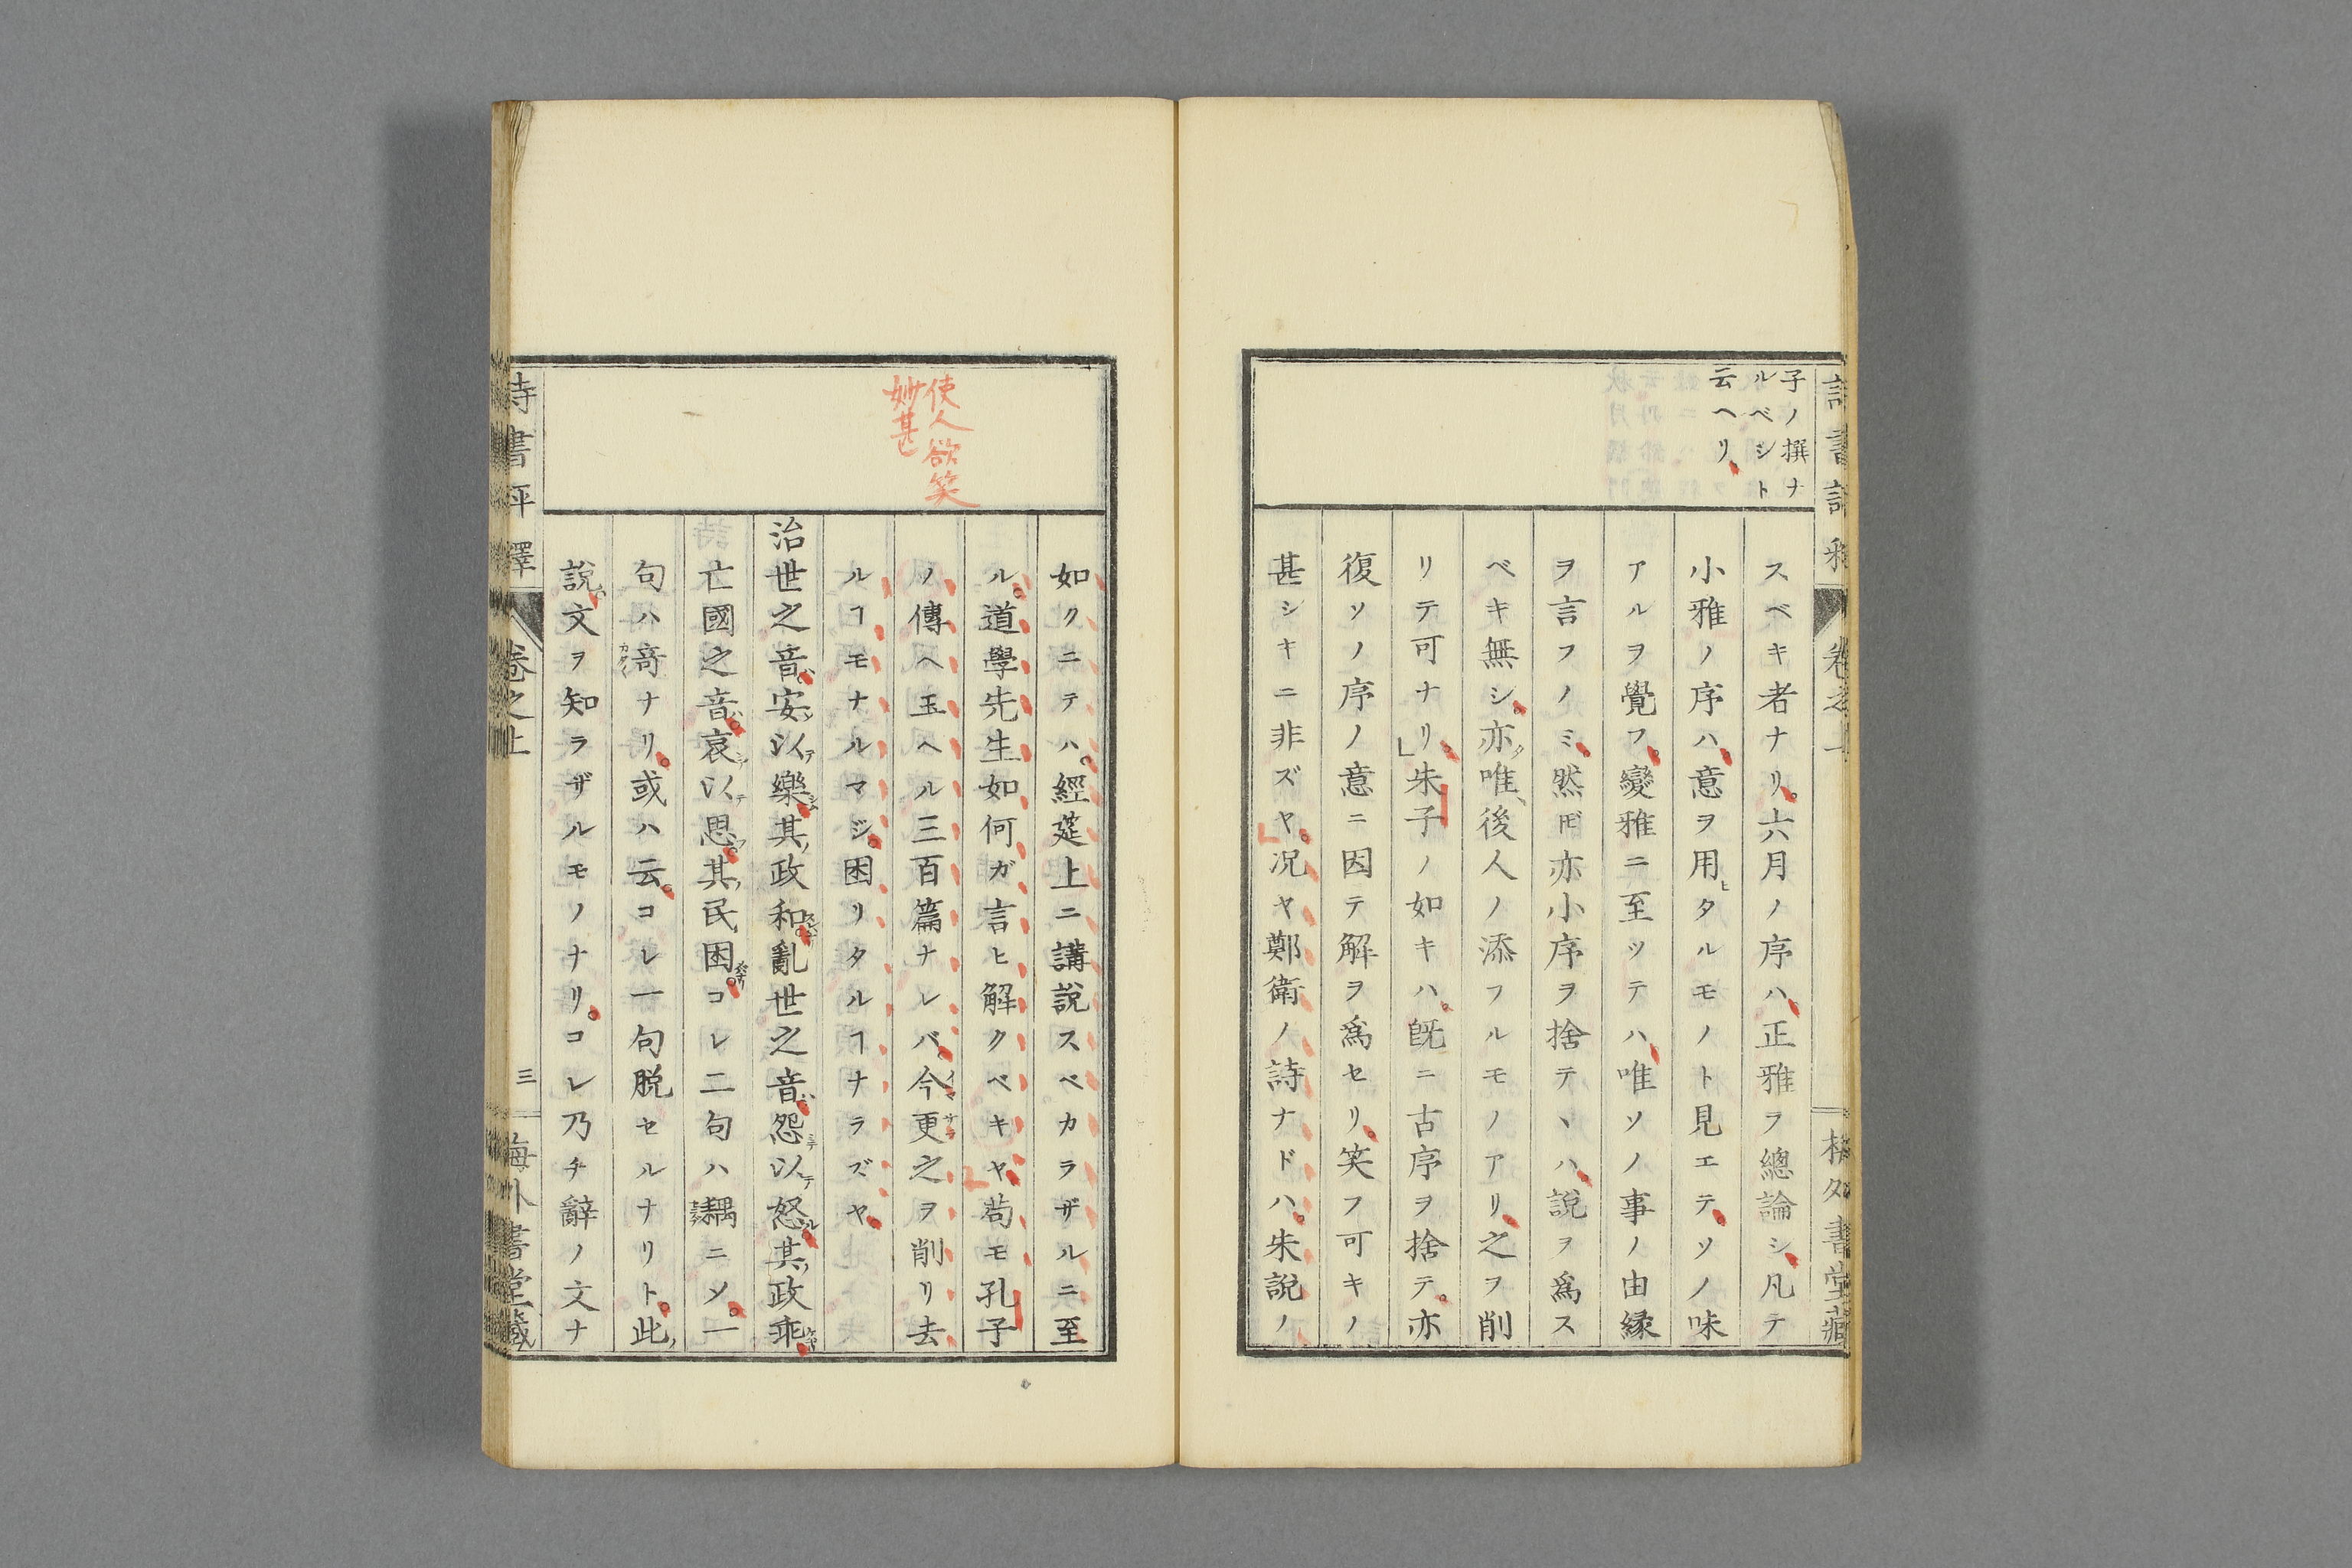 子ノ撰ナ
ルベシト
云ヘリ
スベキ者ナリ。六月ノ序ハ正雅ヲ總論シ凡テ
小雅ノ序ハ意ヲ用ヒタルモノト見エテ。ソノ味
アルヲ覺フ。變雅ニ至ツテハ唯ソノ事ノ由縁
ヲ言フノミ。然𪜈亦小序ヲ捨テヽハ說ヲ爲ス
ベキ無シ。亦唯後人ノ添フルモノアリ之ヲ削
リテ可ナリ。朱子ノ如キハ。既ニ古序ヲ捨テ。亦
復ソノ序ノ意ニ因テ解ヲ爲セリ。笑フ可キノ
甚シキニ非ズヤ。况ヤ鄭衛ノ詩ナドハ。朱說ノ
如クニテハ。經筵上ニ講說スベカラザルニ至
ル。道學先生如何ガ言ヒ解クベキヤ苟モ孔子
ノ傳ヘ玉ヘル三百篇ナレバ。今更之ヲ削リ去
ルヿモナルマジ。困リタルヿナラズヤ
治世之音。安以樂其政和。亂世之音怨以怒其政乖
亡國之音。哀以思。其民困。コレ二句ハ耦讀ニ〆。一
句ハ竒ナリ。或ハ云。コレ一句脱セルナリト。此
說文ヲ知ラザルモノナリ。コレ乃チ辭ノ文ナ
使人欲笑
妙甚也
詩書評釋
卷之上
三
梅外書堂藏